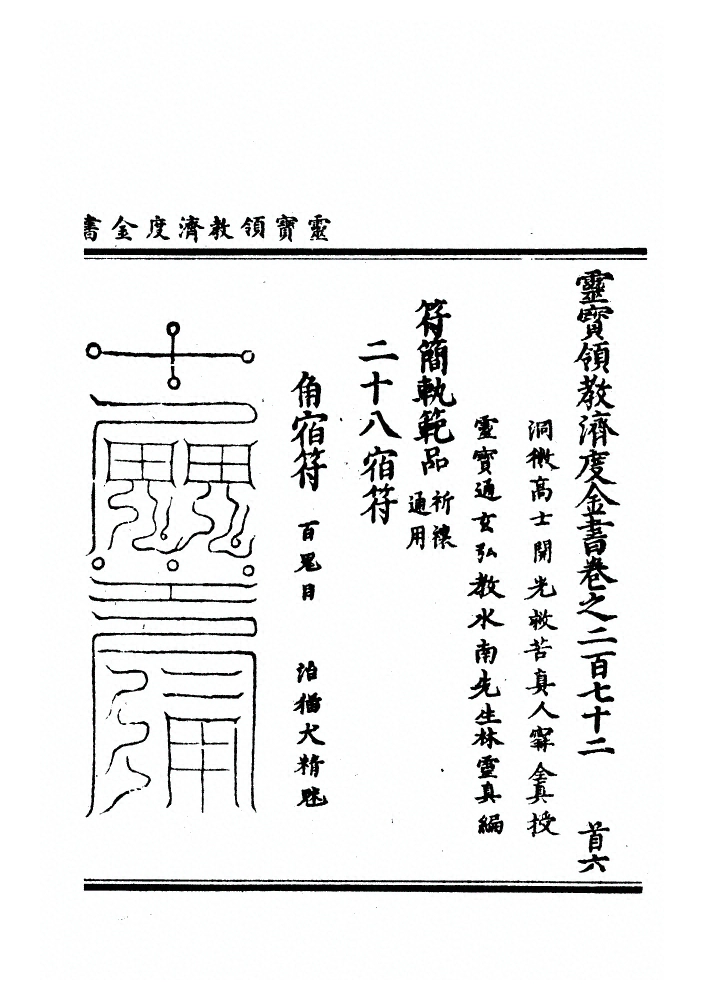 靈寶領教濟度金書
靈寶領教濟度金書卷之二百七十二 首六
洞微高士開光救苦真人寗全真授
靈寶通玄弘教水南先生林靈真編
符簡軌範品 祈禳通用
二十八宿符
角宿符 百鬼目 治猫犬精魅